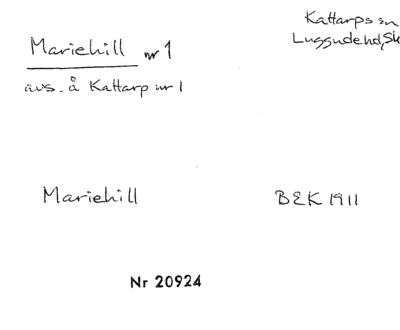 Kattarps sn
Luggude hd, Sk
Mariehill nr 1
avs. å Kattarp nr 1
Mariehill BEK 1911
Nr 20924